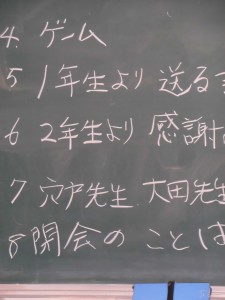 4. ゲーム
5 1年生より 送る
6 2年生より 感謝
7 宍戸先生 大田先生
8 閉会の ことば